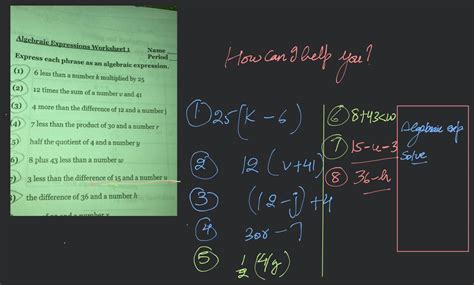 Algebraic Expressions Worksheet 1 Name
Period
Express each phrase as an algebraic expression.
(1) 6 less than a number k multiplied by 25
(2) 12 times the sum of a number v and 41
(3) 4 more than the difference of 12 and a number j
(4) 7 less than the product of 30 and a number r
5) half the quotient of 4 and a number y
(6) 8 plus 43 less than a number w
7) 3 less than the difference of 15 and a number u
8) the difference of 36 and a number h
How can I help you?
① 25(k - 6)
② 12 (v+41)
③ (12-j)+4
④ 30r - 7
⑤ 1/2 (4/y)
⑥ 8+43<w
⑦ 15-u-3
⑧ 36-h
Algebraic exp
Solve